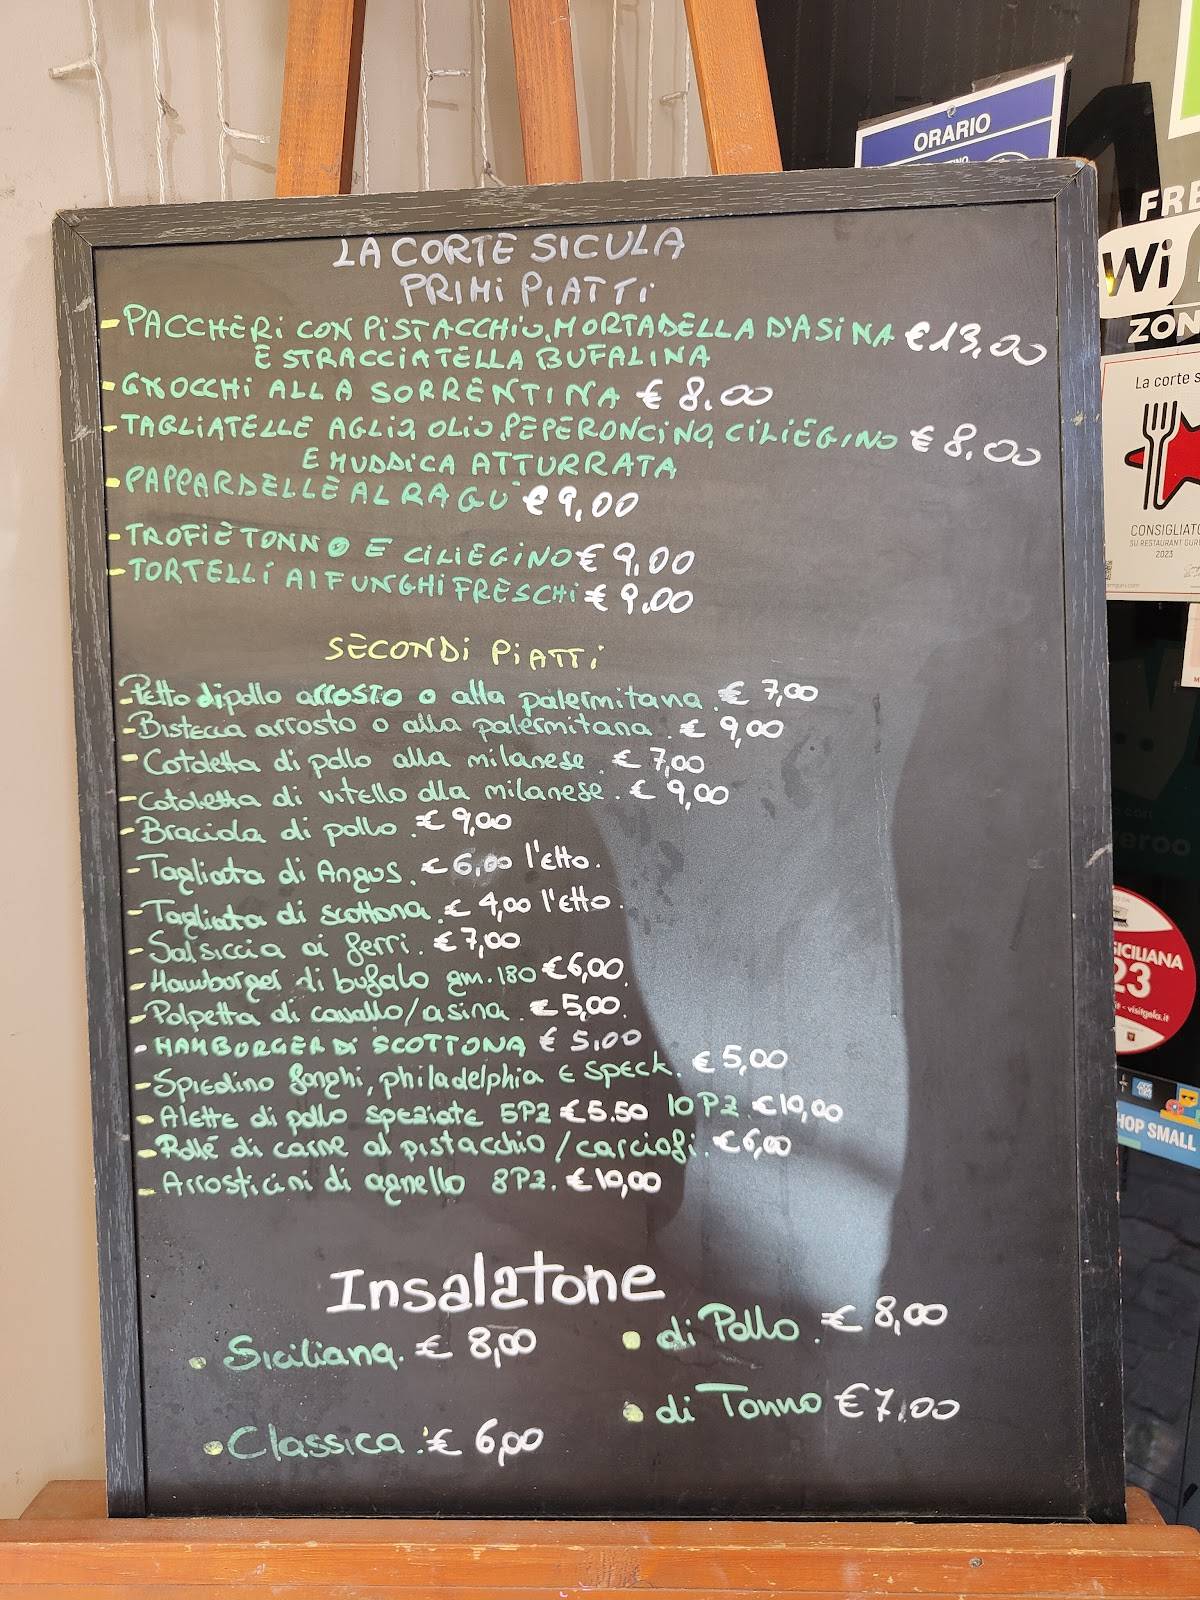 ORARIO
FRE
Wi
ZON
La corte s
CONSIGLIATO
SU RESTAURANT GURU
2023
SICILIANA
23
visitgela.it
HOP SMALL
LA CORTE SICULA
PRIMI PIATTI
- PACCHERI CON PISTACCHIO, MORTADELLA D'ASINA € 13,00
E STRACCIATELLA BUFALINA
- GNOCCHI ALLA SORRENTINA € 8,00
- TAGLIATELLE AGLIO, OLIO, PEPERONCINO, CILIEGINO € 8,00
E MUDDICA ATTURRATA
- PAPPARDELLE AL RAGU' € 9,00
- TROFIE TONNO E CILIEGINO € 9,00
- TORTELLI AI FUNGHI FRESCHI € 9,00
SECONDI PIATTI
- Petto di pollo arrosto o alla palermitana. € 7,00
- Bistecca arrosto o alla palermitana. € 9,00
- Cotoletta di pollo alla milanese. € 7,00
- Cotoletta di vitello alla milanese. € 9,00
- Braciola di pollo. € 9,00
- Tagliata di Angus. € 6,00 l'etto.
- Tagliata di scottona. € 4,00 l'etto.
- Salsiccia ai ferri. € 7,00
- Hamburger di bufalo gm. 180 € 6,00
- Polpetta di cavallo/asina. € 5,00.
- HAMBURGER DI SCOTTONA € 5,00
- Spiedino fonghi, philadelphia e speck. € 5,00
- Alette di pollo speziate 5PZ € 5.50 10 PZ. € 10,00
- Rollé di carne al pistacchio/carciofi. € 6,00
- Arrosticini di agnello 8PZ. € 10,00
Insalatone
• Siciliana. € 8,00
• di Pollo. € 8,00
• Classica. € 6,00
• di Tonno € 7,00